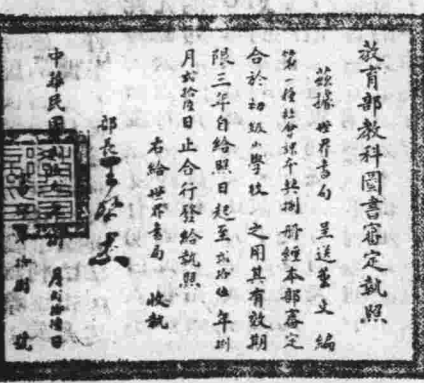 教育部教科圖書審定執照
茲據 世界書局 呈送董文編
第一種社會課本共捌冊經本部審定
合於初級小學校之用其有效期
限三年自給照日起至貳拾伍年捌
月貳拾陸日止合行發給執照
右給世界書局 收執
部長王世杰
中華民國 月貳拾陸日
號